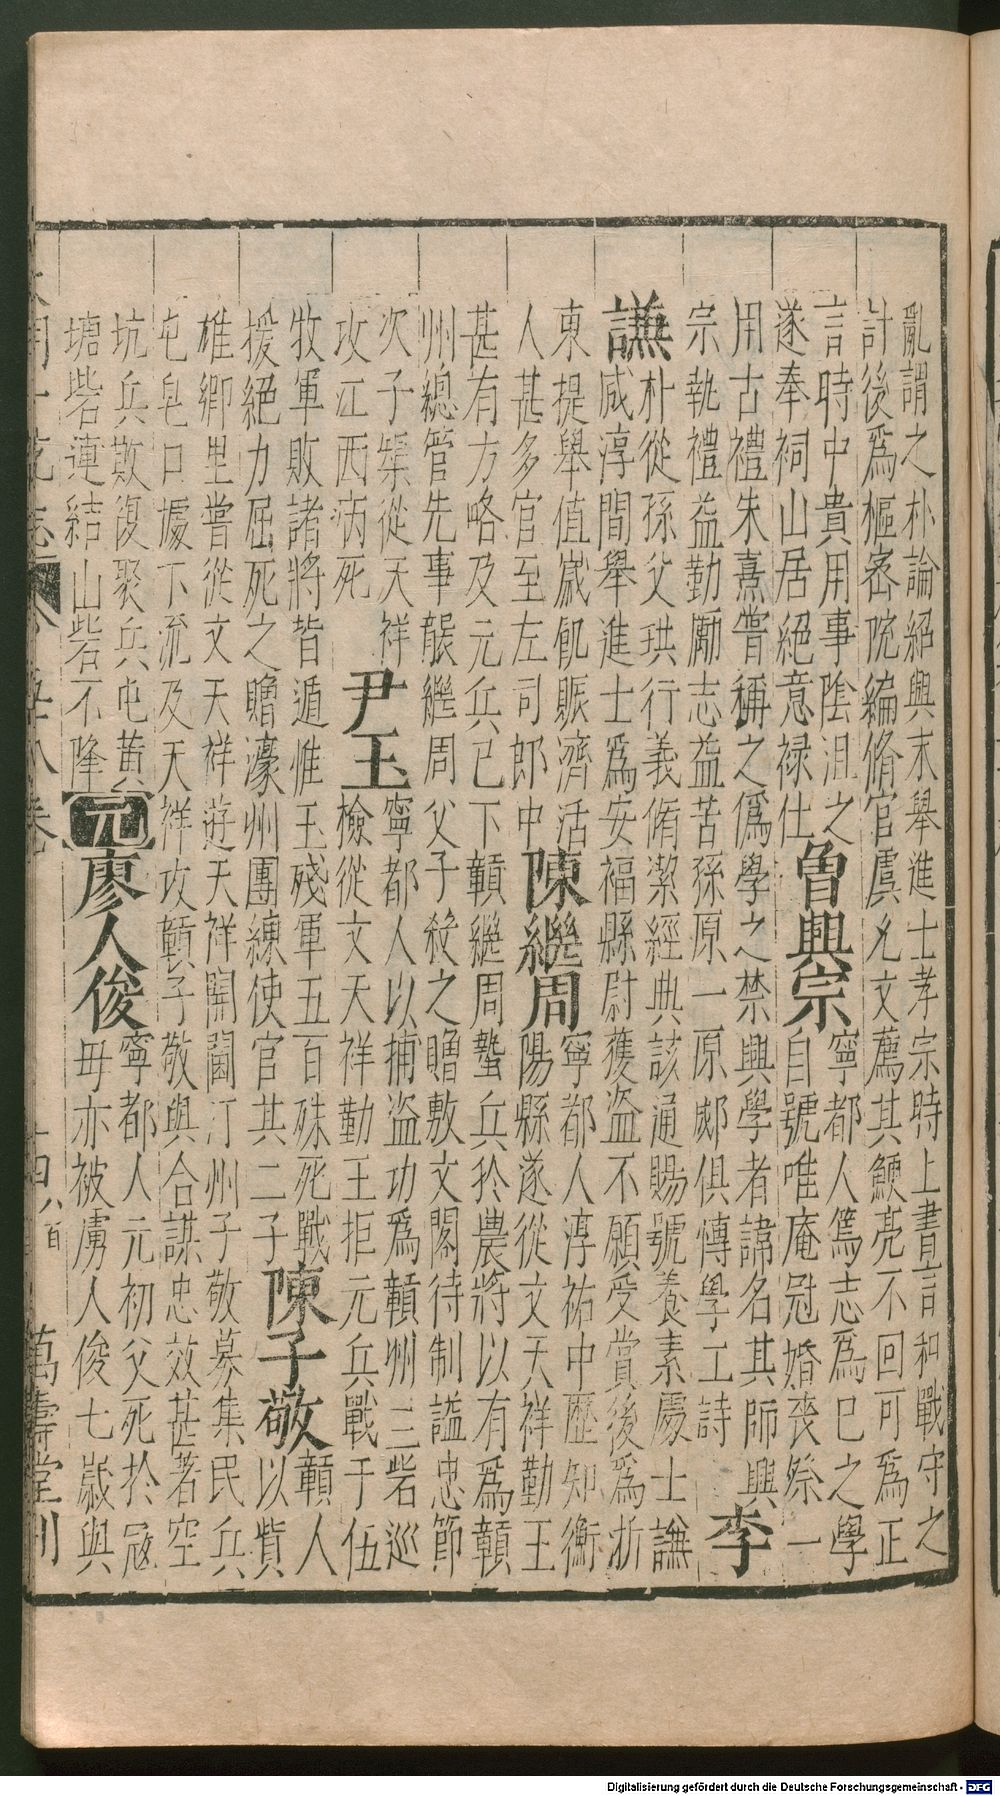 亂謂之朴論紹興末舉進士孝宗時上書言和戰守之
計後爲樞密院編脩官虞允文薦其鯁亮不回可爲正
言時中貴用事陰沮之
遂奉祠山居絕意祿仕
魯興宗
寧都人篤志爲已之學
自號唯庵冠婚喪祭一
用古禮朱熹嘗稱之僞學之禁興學者諱名其師興
宗執禮益勤勵志益苦孫原一原郕俱博學工詩
李謙
朴從孫父珙行義脩潔經典該通賜號養素處士謙
咸淳間舉進士爲安福縣尉獲盜不願受賞後爲浙
東提舉值歲飢賑濟活
人甚多官至左司郎中
陳繼周
寧都人淳祐中歷知衡
陽縣遂從文天祥勤王
甚有方略及元兵已下贛繼周蟄兵於農將以有爲贛
州總管先事襲繼周父子殺之贈敷文閣待制謚忠節
次子榘從天祥
攻江西病死
尹玉
寧都人以捕盜功爲贛州三砦巡
檢從文天祥勤王拒元兵戰于伍
牧軍敗諸將皆遁惟玉殘軍五百殊死戰
援絕力屈死之贈濠州團練使官其二子
陳子敬
贛人
以貲
雄鄉里嘗從文天祥遊天祥開閫汀州子敬募集民兵
屯皂口據下流及天祥攻贛子敬與合謀忠效甚著空
坑兵敗復聚兵屯黃
塘砦連結山砦不降
元
廖人俊
寧都人元初父死於寇
母亦被虜人俊七歲與
萬壽堂刊
Digitalisierung gefördert durch die Deutsche Forschungsgemeinschaft - DFG